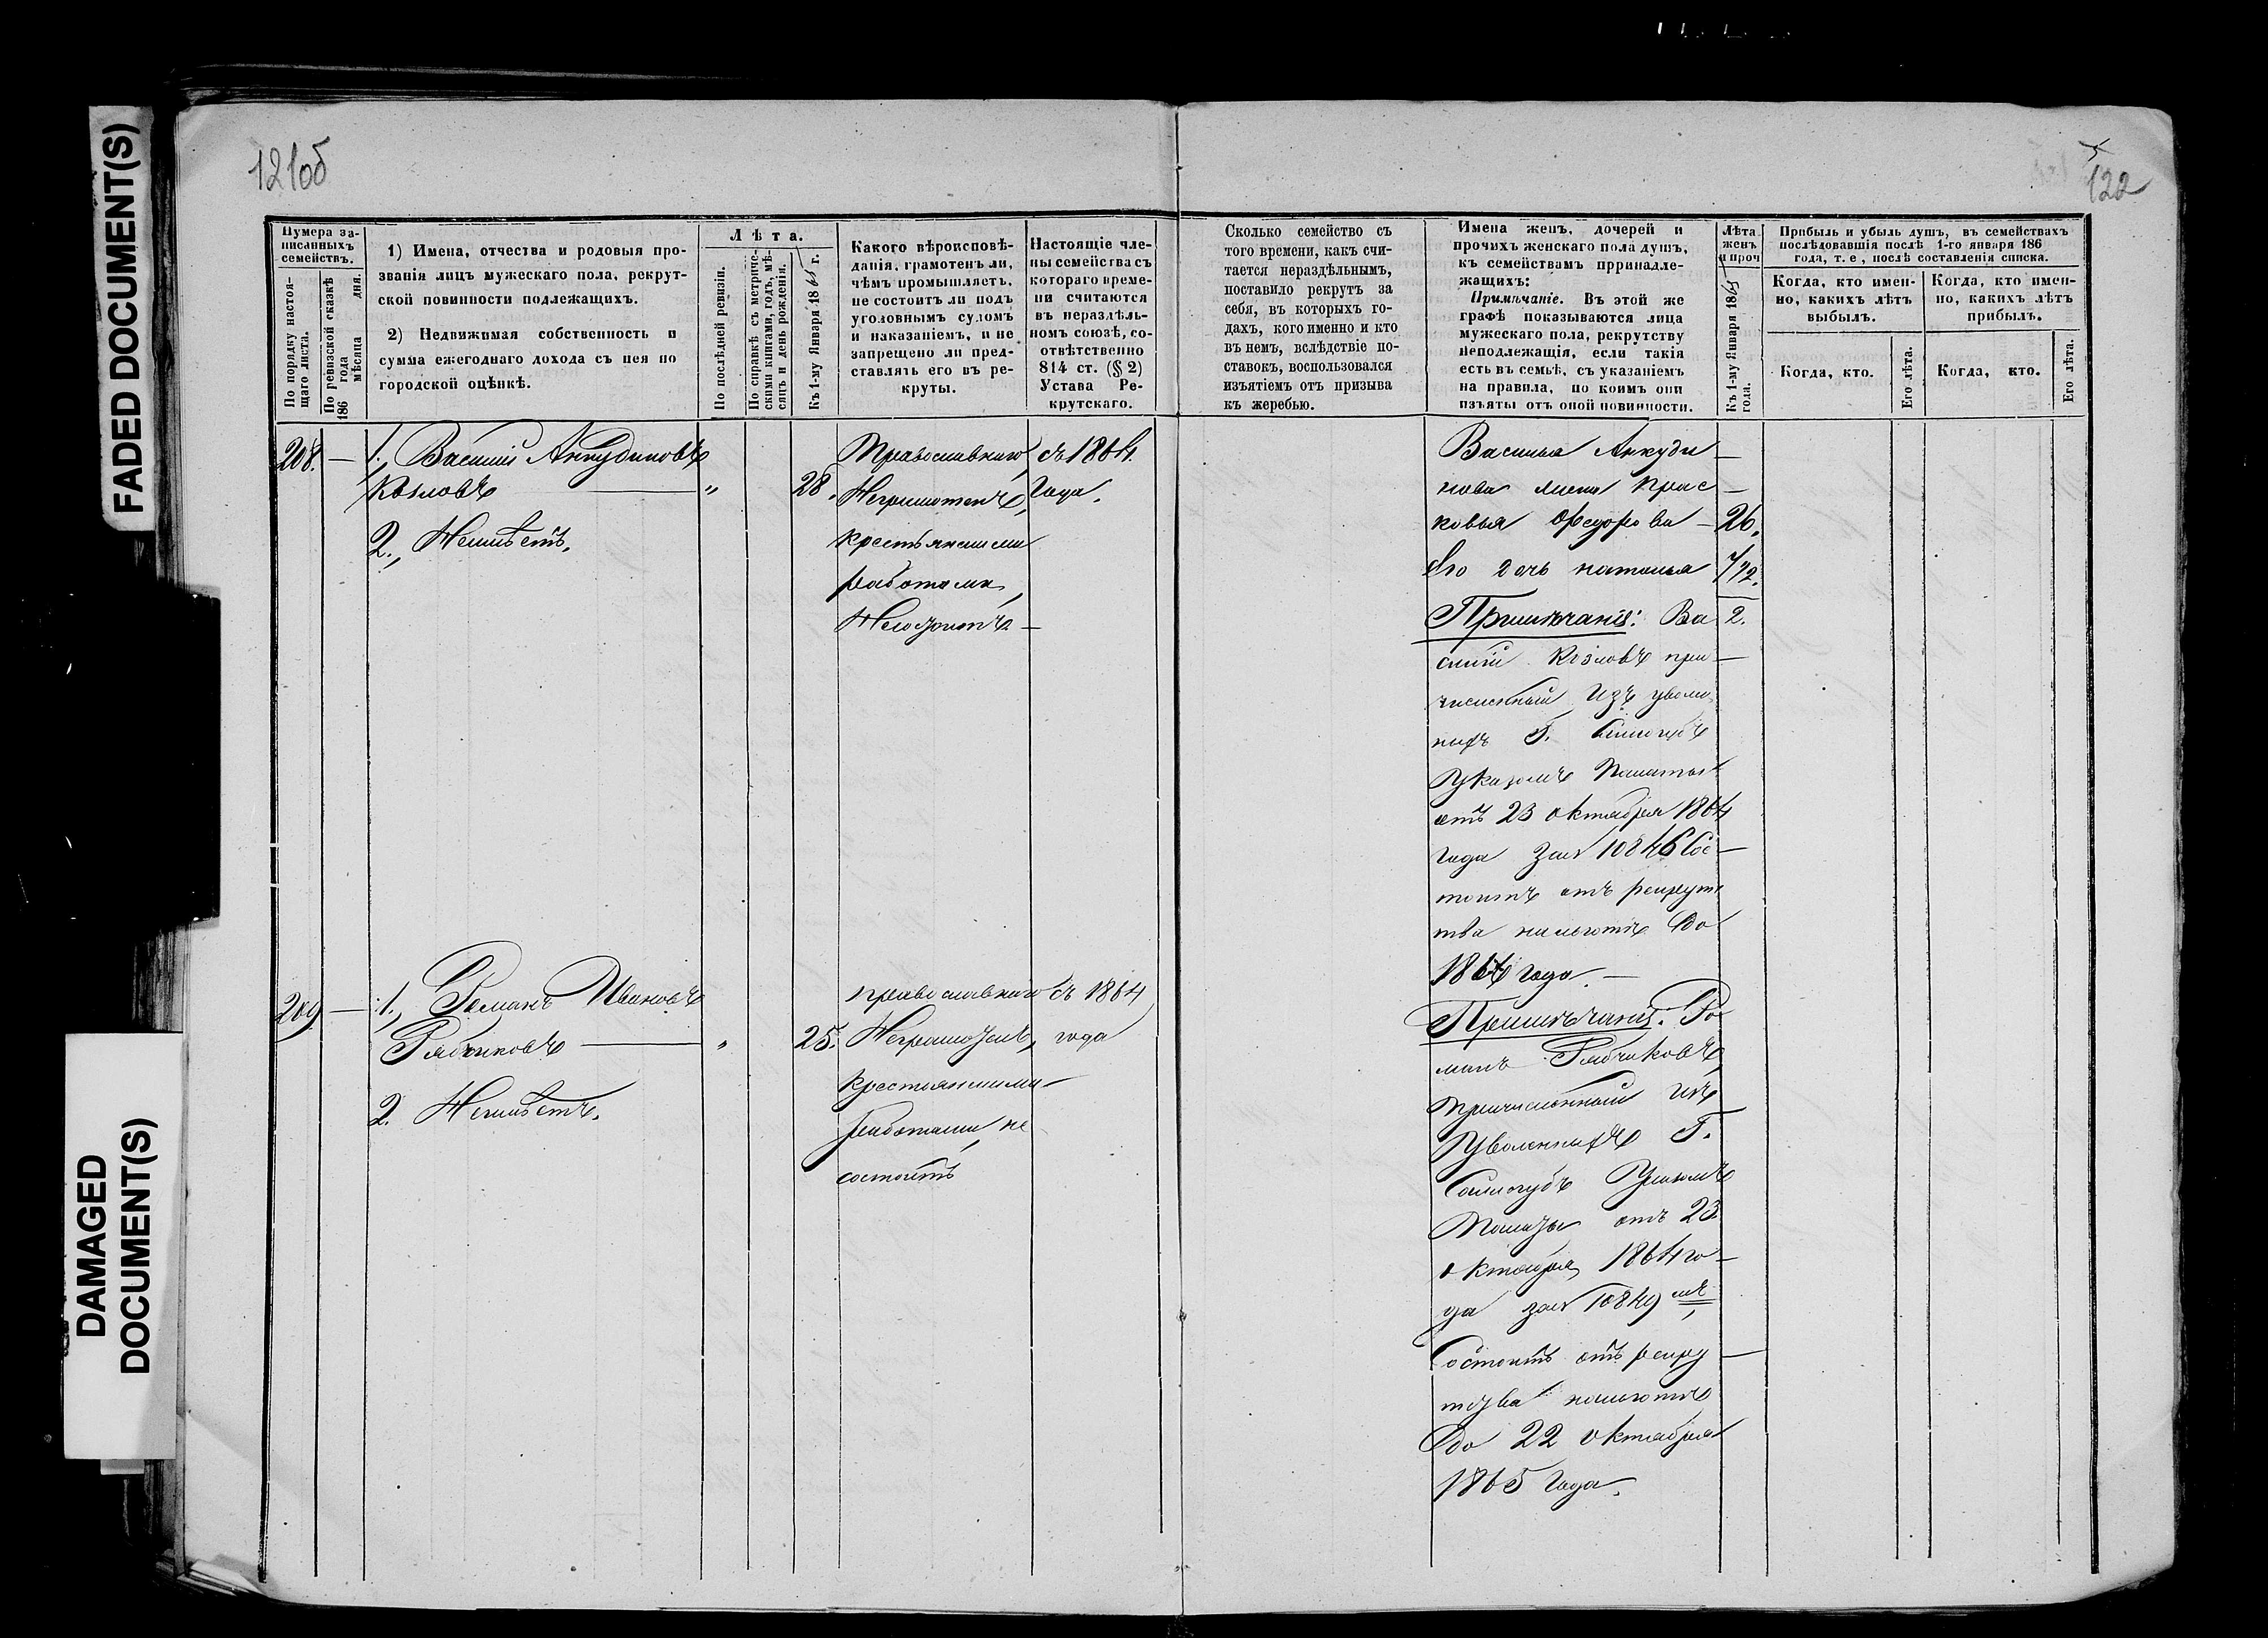 FADED DOCUMENT(S)
DAMAGED
DOCUMENT(S)
121об
122
Нумера за-
писанныхъ
семействъ.
По порядку настоя-
щаго листа.
По ревизской сказкѣ
186 года
мѣсяца дня.
1) Имена, отчества и родовыя про-
званія лицъ мужескаго пола, рекрут-
ской повинности подлежащихъ.
2) Недвижимая собственность и
сумма ежегоднаго дохода съ нея по
городской оцѣнкѣ.
Лѣта.
По послѣдней ревизіи.
По справкѣ съ метриче-
скими книгами, годъ, мѣ-
сяцъ и день рожденія.
Къ 1-му Января 1865 г.
Какого вѣроисповѣ-
данія, грамотенъ ли,
чѣмъ промышляетъ,
не состоитъ ли подъ
уголовнымъ судомъ
и наказаніемъ, и не
запрещено ли пред-
ставлять его въ ре-
круты.
Настоящіе чле-
ны семейства съ
котораго време-
ни считаются
въ нераздѣль-
номъ союзѣ, со-
отвѣтственно
814 ст. (§ 2)
Устава Ре-
крутскаго.
Сколько семейство съ
того времени, какъ счи-
тается нераздѣльнымъ,
поставило рекрутъ за
себя, въ которыхъ го-
дахъ, кого именно и кто
въ немъ, вслѣдствіе по-
ставокъ, воспользовался
изъятіемъ отъ призыва
къ жеребью.
Имена женъ, дочерей и
прочихъ женскаго пола душъ,
къ семействамъ прринадле-
жащихъ:
Примѣчаніе. Въ этой же
графѣ показываются лица
мужескаго пола, рекрутству
неподлежащія, если такія
есть въ семьѣ, съ указаніемъ
на правила, по коимъ они
изъяты отъ оной повинности.
Лѣта
женъ
и проч
Къ 1-му Января 1865
года.
Прибыль и убыль душъ, въ семействахъ
послѣдовавшія послѣ 1-го января 186
года, т. е., послѣ составленія списка.
Когда, кто имен-
но, какихъ лѣтъ
выбылъ.
Когда, кто имен-
но, какихъ лѣтъ
прибылъ.
Когда, кто.
Его лѣта.
Когда, кто.
Его лѣта.
208. — 1., Василій Анкудиновъ
Козловъ — „ 28.
2., Неимѣетъ.
Православнаго
Неграмотенъ,
крестьянскими
работами,
Несостоитъ —
съ 1864
Года.
Василья Анкуди
нова жена Прас
ковья Федорова — 26.
Его дочь наталья 7/12.
Примѣчаніе: Ва 2.
силій Козловъ при
численный Изъ уволен
ныхъ Г. Сологубъ
Указомъ Палаты
отъ 23 октября 1864
года за № 10846 Сос
тоитъ отъ рекрутс
тва на льготѣ до
года. —
209 — 1., Романъ Ивановъ
Рябчиковъ — „ 25.
2. Неимѣетъ.
православнаго
Неграмотенъ,
крестьянскими
работами, не
состоитъ
съ 1864
года
Примѣчаніе. Ро
манъ Рябчиковъ
причисленный изъ
Уволенныхъ Г.
Сологубъ Указомъ
Палаты отъ 23
октября 1864 го
да за № 10849 мъ
Состоитъ отъ рекру
тства на льготѣ
до 22 октября
1865 Года.